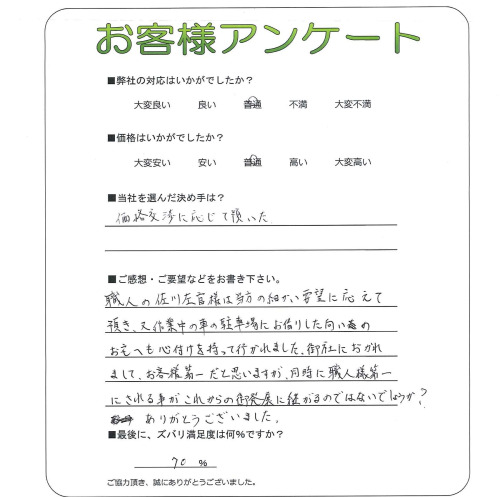 お客様アンケート
■弊社の対応はいかがでしたか？
大変良い　良い　普通　不満　大変不満
■価格はいかがでしたか？
大変安い　安い　普通　高い　大変高い
■当社を選んだ決め手は？
価格交渉に応じて頂いた
■ご感想・ご要望などをお書き下さい。
職人の佐川左官様は当方の細かい要望に応えて
頂き、又作業中の車の駐車場にお借りした向い の
お宅へも心付けを持って行かれました。御社におかれ
まして、お客様第一だと思いますが、同時に職人様第一
にされる事がこれからの御発展に継がるのではないでしょうか？
ありがとうございました。
■最後に、ズバリ満足度は何%ですか？
70 %
ご協力頂き、誠にありがとうございました。